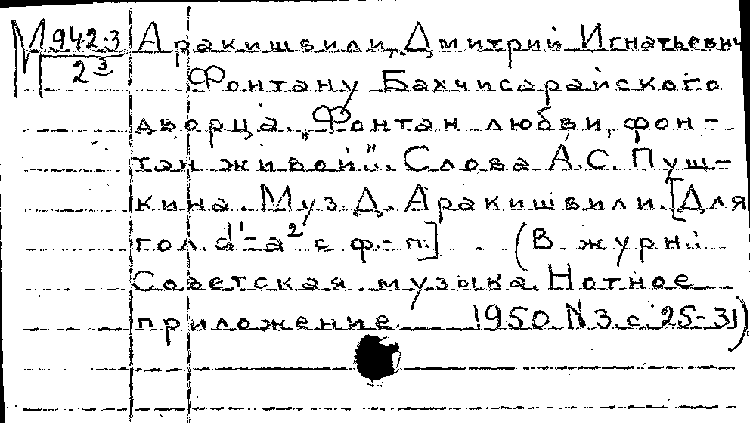 М 942.3 Аракишвили, Дмитрий Игнатьевич
2³ Фонтану Бахчисарайского
дворца. „Фонтан любви, фон-
тан живой". Слова А.С. Пуш-
кина. Муз. Д. Аракишвили. [Для
гол. d'-a² с ф.-п.] (В журн.:
Советская музыка. Нотное
приложение 1950 N 3. с. 25-31)